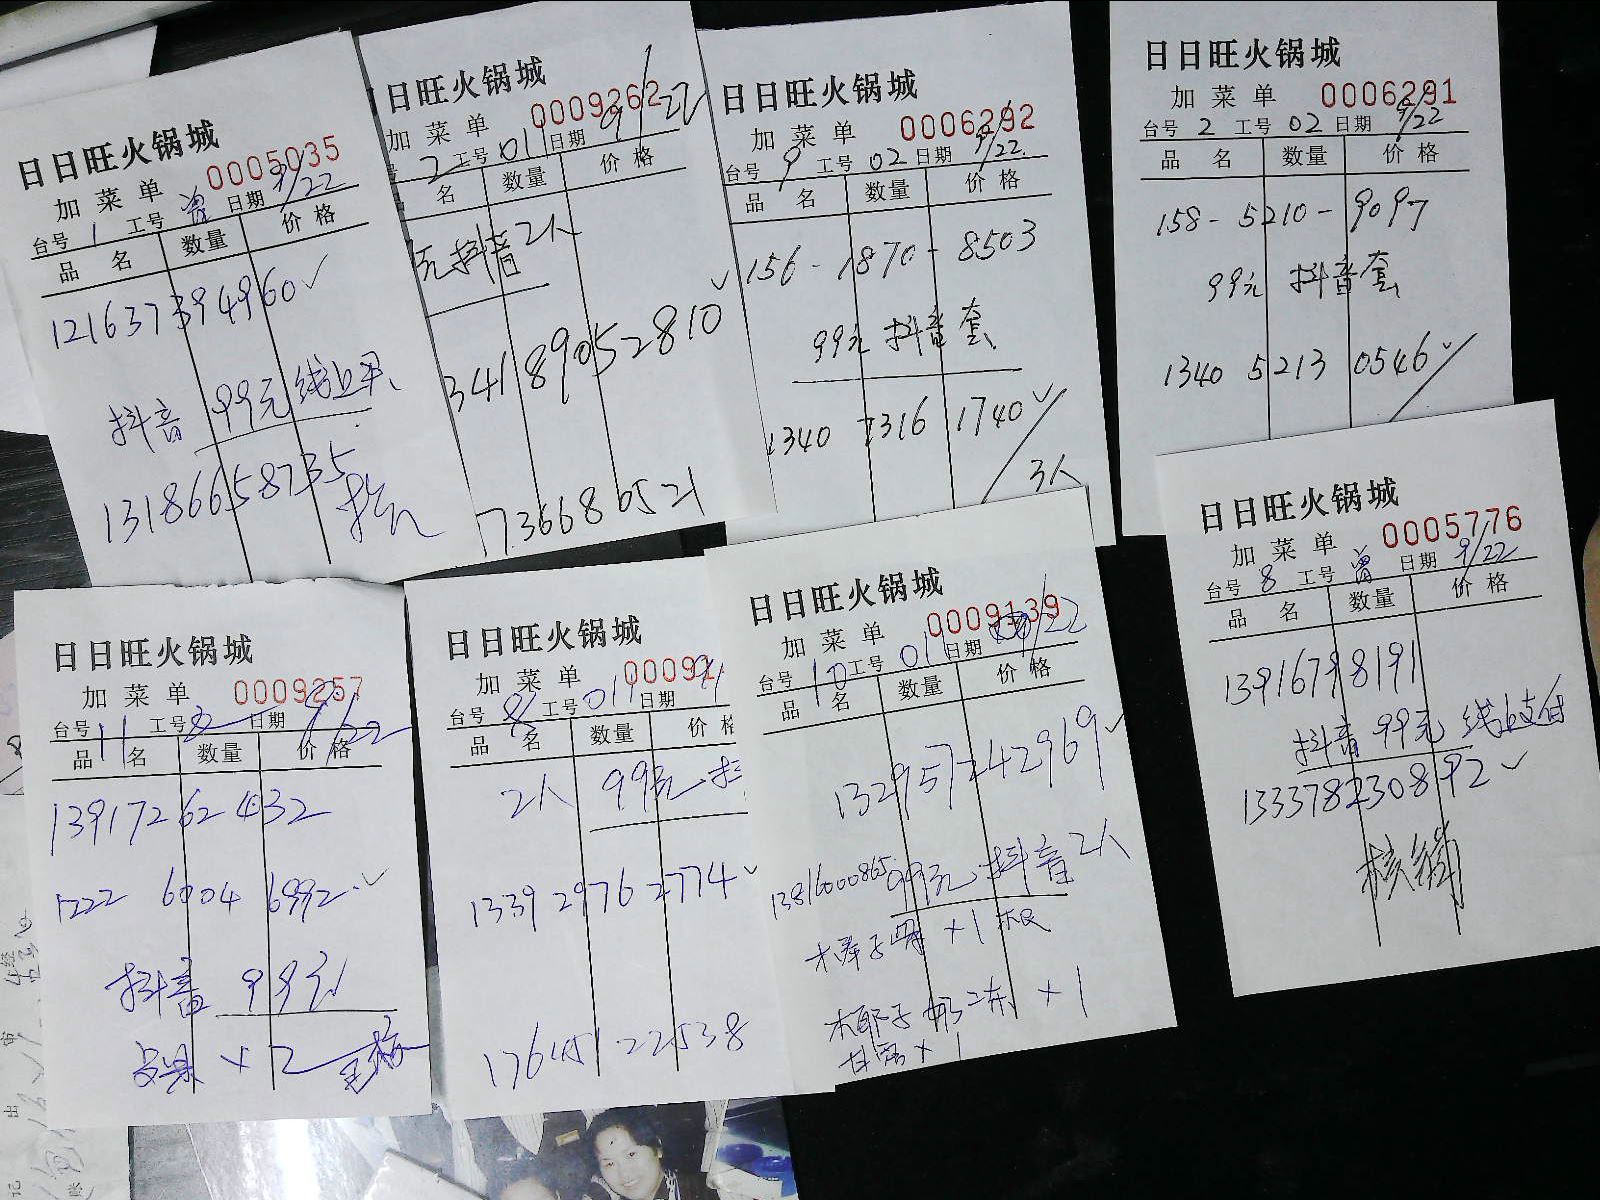 日日旺火锅城
加菜单 0005035
台号 1 工号 曾 日期 9/22
品名 数量 价格
121637394960✓
抖音 99元线上用
13186658735
日日旺火锅城
加菜单 0009262
2 工号 01 日期 9/22
名 数量 价格
元抖音2人
34189052810✓
7366860521
日日旺火锅城
加菜单 0006292
台号 9 工号 02 日期 9/22
品名 数量 价格
156-1870-8503
99元 抖音套
1340 7316 1740✓
3人
日日旺火锅城
加菜单 0006291
台号 2 工号 02 日期 9/22
品名 数量 价格
158-5210-9097
99元 抖音套
1340 5213 0546✓
日日旺火锅城
加菜单 0009257
台号 11 工号 日期 9/22
品名 数量 价格
13917262432
1222 6004 6992✓
抖音 99元
×2
日日旺火锅城
加菜单 00091
台号 8 工号 01 日期
品名 数量 价格
2人 99元 抖
1339 2976 2774✓
176451 22538
日日旺火锅城
加菜单 0009139
台号 10 工号 01 日期 /22
品名 数量 价格
132957242969✓
13816000865 99元抖音2人
×1
椰子 ×1
×1
日日旺火锅城
加菜单 0005776
台号 8 工号 曾 日期 9/22
品名 数量 价格
13916798191
抖音 99元 线上支付
133378230892✓
核销